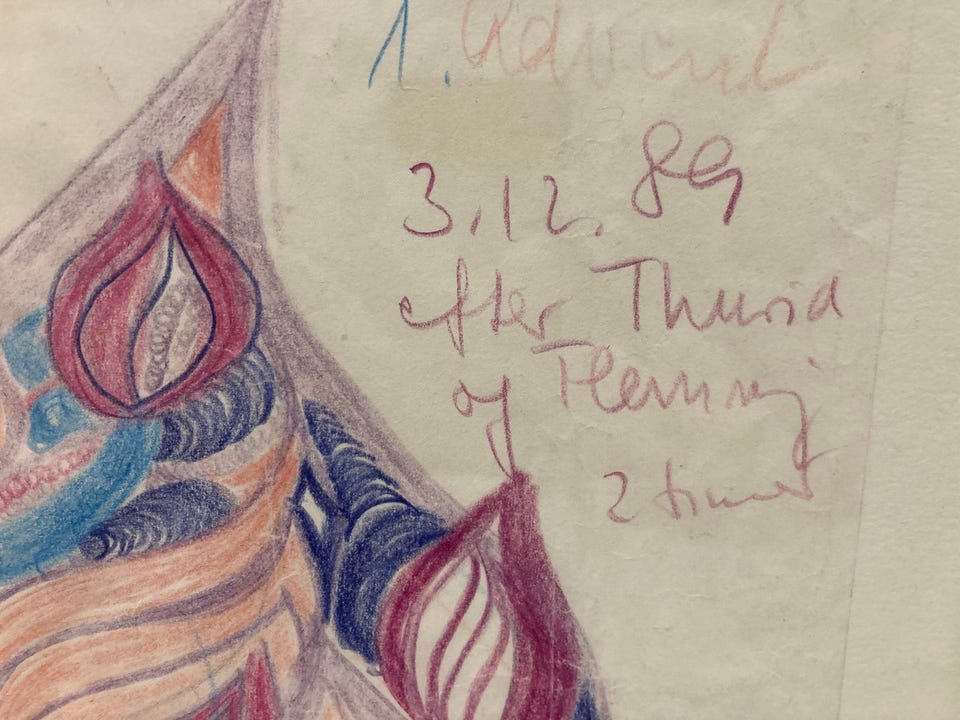 1. Advent
3.12.89
efter Thurid
og Flemming
2 timer